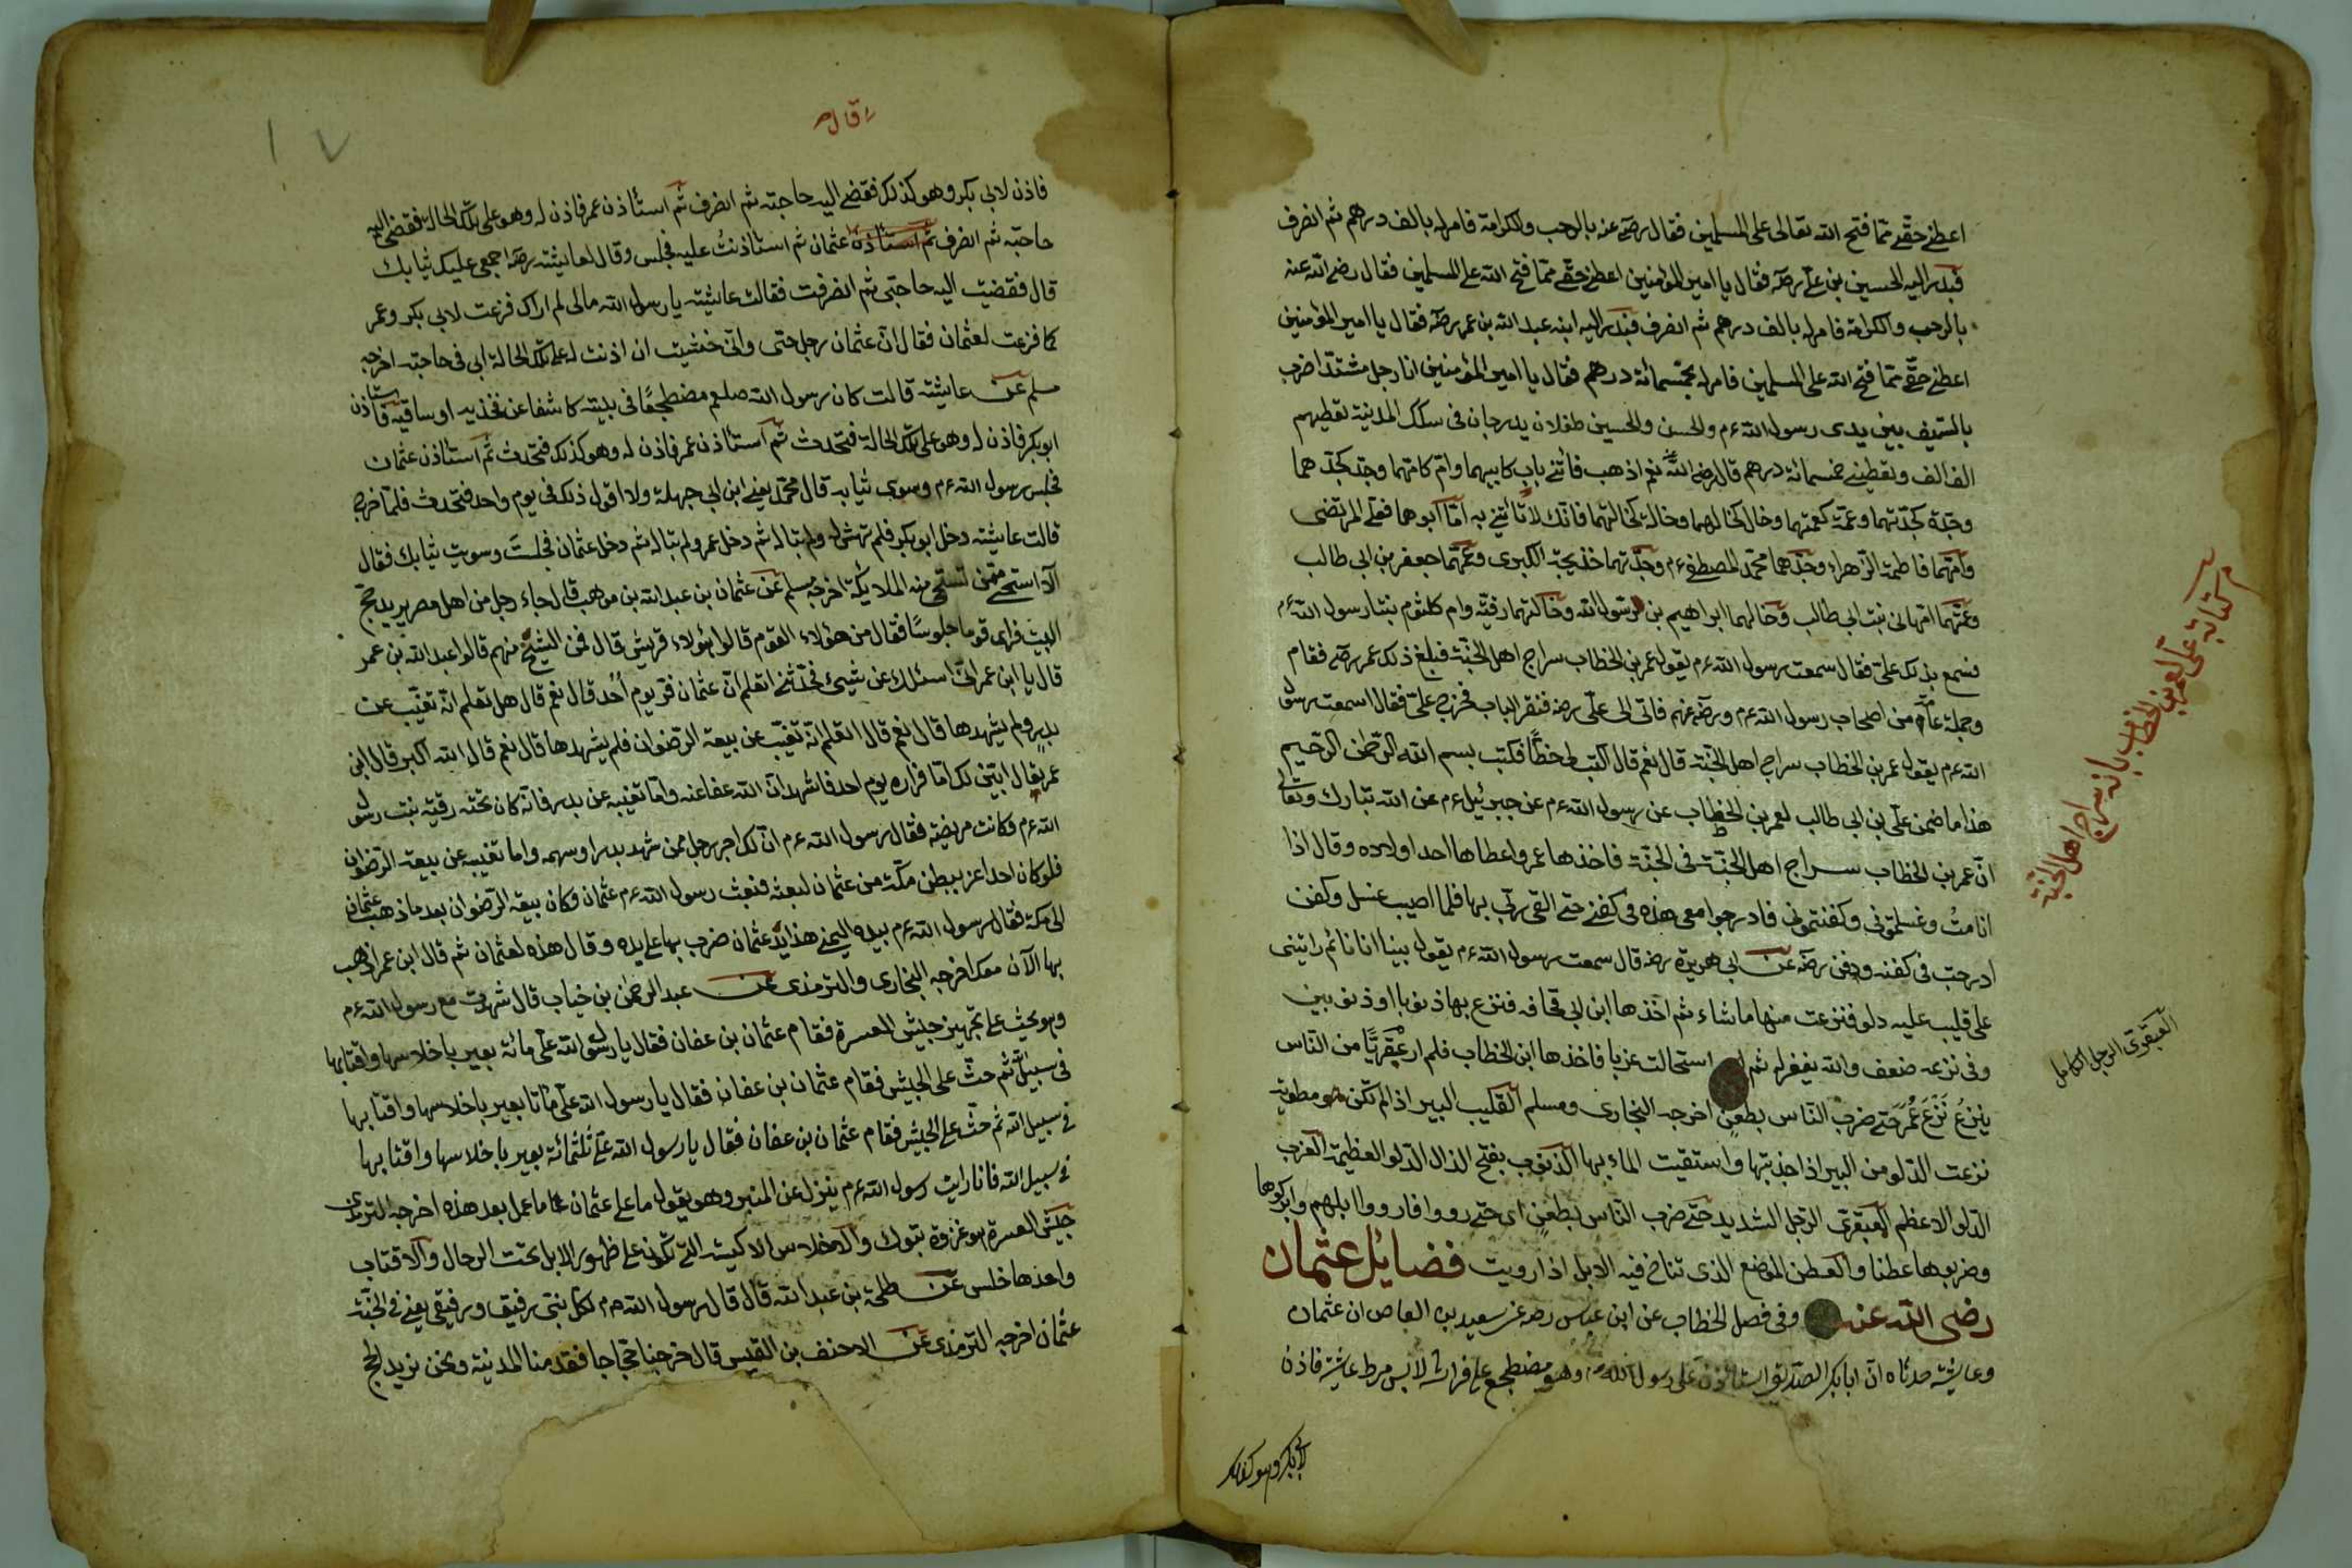 اعطنى حقّى ممّا فتح الله تعالى على المسلمين فقال رضه عنه بالرحب والكرامة فامر له بالف درهم ثم انصرف
فبدر اليه الحسين بن على رضه فقال يا امير المؤمنين اعطنى حقّى ممّا فتح الله على المسلمين فقال رضى الله عنه
بالرحب والكرامة فامر له بالف درهم ثم انصرف فبدر اليه ابنه عبد الله بن عمر رضه فقال يا امير المؤمنين
اعطنى حقّى ممّا فتح الله على المسلمين فامر له بخمسمائة درهم فقال يا امير المؤمنين انا رجل مشتدّ اضرب
بالسّيف بين يدى رسول الله ءم والحسن والحسين طفلان يدرجان فى سكك المدينة تعطيهم
الف الف وتعطينى خمسمائة درهم قال رضى الله عنه نعم اذهب فأتنى باب كابيهما وامّ كامّهما وجدّ كجدّهما
وجدّة كجدّتهما وعمّة كعمّتهما وخال كخالهما وخالة كخالتهما فانّك لا تأتنى به امّا ابوهما فعلى المرتضى
وامّهما فاطمة الزهراء وجدّهما محمّد المصطفى ءم وجدّتهما خديجة الكبرى وعمّهما جعفر بن ابى طالب
وعمّتهما امّ هانى بنت ابى طالب وخالهما ابراهيم بن رسول الله وخالتهما رقيّة وام كلثوم بنتا رسول الله ءم
فسمع بذلك علىّ فقال سمعت رسول الله ءم يقول عمر بن الخطاب سراج اهل الجنّة فبلغ ذلك عمر رضه فقام
وجملة عامّة من اصحاب رسول الله ءم ورضه عنهم فاتى الى علىّ رضه فنقر الباب فخرج علىّ فقال اسمعت رسول
الله ءم يقول عمر بن الخطاب سراج اهل الجنّة قال نعم قال اكتب لى خطّا فكتب بسم الله الرّحمن الرّحيم
هذا ما ضمن علىّ بن ابى طالب لعمر بن الخطاب عن رسول الله ءم عن جبرئيل ءم عن الله تبارك وتعالى
انّ عمر بن الخطاب سراج اهل الجنّة فى الجنّة فاخذها عمر واعطاها احد اولاده وقال اذا
انا متُّ وغسلتمونى وكفنتمونى فادرجوا معى هذه فى كفنى حتى القى ربّى بها فلما اصيب غسل وكفن
ادرجت فى كفنه ودفن رضه عن ابى هريرة رضه قال سمعت رسول الله ءم يقول بينا انا نائم رايتنى
على قليب عليه دلو فنزعت منها ما شاء ثم اخذها ابن ابى قحافه فنزع بها ذنوبا او ذنوبين
وفى نزعه ضعف والله يغفر له ثم استحالت غربا فاخذها ابن الخطاب فلم ار عبقريّا من النّاس
ينزع نزع عمر حتى ضرب النّاس بطعن اخرجه البخارى ومسلم القليب البير اذا لم تكن هو مطويّة
نزعت الدّلو من البير اذا جذبتها واستقيت الماء بها الذنوب بفتح الذال الدّلو العظيمة الغرب
الدّلو الاعظم العبقرىّ الرّجل الشديد حتى ضرب النّاس بطعن اى حتى رووا فارووا ابلهم وابركوها
وضربوها عطنا والعطن الموضع الذى تناخ فيه الابل اذا رويت فضايل عثمان
رضى الله عنه وفى فصل الخطاب عن ابن عباس رضه عن سعيد بن العاص ان عثمان
وعايشة حدثاه انّ ابا بكر الصّديق استاذن على رسول الله ءم وهو مضطجع على فراشه لابس مرط عايشة فاذن
لابى بكر وهو كذلك
كتابة علىّ لعمر بن الخطاب بانه سراج اهل الجنّة
العبقرى الرجل الكامل
قال
فاذن لابى بكر وهو كذلك فقضى اليه حاجته ثم انصرف ثم استأذن عمر فاذن له وهو على تلك الحالة فقضى اليه
حاجته ثم انصرف ثم استاذن عثمان ثم استاذنتُ عليه فجلس وقال لعايشة رضه اجمعى عليك ثيابك
قال فقضيت اليه حاجتى ثم انصرفت فقالت عايشة يا رسول الله مالى لم اراك فزعت لابى بكر وعمر
كما فزعت لعثمان فقال انّ عثمان رجل حيى وانّى خشيت ان اذنت له على تلك الحالة ابى فى حاجته اخرجه
مسلم عن عايشة قالت كان رسول الله صلعم مضطجعًا فى بيته كاشفا عن فخذيه او ساقيه فاستاذن
ابو بكر فاذن له وهو على تلك الحالة فتحدث ثم استأذن عمر فاذن له وهو كذلك فتحدث ثم استأذن عثمان
فجلس رسول الله ءم وسوى ثيابه قال محمّد يعنى ابن ابى جهلة ولا اقول ذلك فى يوم واحد فتحدث فلمّا خرج
قالت عايشة دخل ابو بكر فلم تهتش له ولم تباله ثم دخل عمر ولم تباله ثم دخل عثمان فجلست وسويت ثيابك فقال
ألا استحى ممّن تستحى منه الملايكة اخرجه مسلم عن عثمان بن عبد الله بن موهب قال جاء رجل من اهل مصر يريد حج
البيت فراى قوما جلوسًا فقال من هؤلاء القوم قالوا هؤلاء قريش قال فمن الشيخ منهم قالوا عبد الله بن عمر
قال يا ابن عمر انّى اسئلك عن شيئ فحدّثنى اتعلم انّ عثمان فرّ يوم أُحد قال نعم قال هل تعلم انّه تغيّب عن
بدرٍ ولم يشهدها قال نعم قال اتعلم انّه تغيّب عن بيعة الرّضوان فلم يشهدها قال نعم قال الله اكبر قال ابن
عمر تعال ابيّن لك امّا فراره يوم احد فاشهد انّ الله عفا عنه وامّا تغيّبه عن بدر فانّه كان تحته رقيّة بنت رسول
الله ءم وكانت مريضة فقال رسول الله ءم انّ لك اجر رجل ممّن شهد بدرا وسهمه واما تغيبه عن بيعة الرّضوان
فلو كان احدا عز ببطن مكّة من عثمان لبعثه فبعث رسول الله ءم عثمان وكان بيعة الرّضوان بعد ما ذهب عثمان
الى مكة فقال رسول الله ءم بيده اليمنى هذا يد عثمان ضرب بها على يده وقال هذه لعثمان ثم قال ابن عمر اذهب
بها الآن معك اخرجه البخارى والترمذى عن عبد الرحمن بن خباب قال شهدت مع رسول الله ءم
وهو يحث على تجهيز جيش العسرة فقام عثمان بن عفان فقال يا رسول الله علىّ مائة بعير باخلاسها واقتابها
فى سبيل ثم حثّ على الجيش فقام عثمان بن عفان فقال يا رسول الله علىّ مأتا بعير باخلاسها واقتابها
فى سبيل الله ثم حثّ على الجيش فقام عثمان بن عفان فقال يا رسول الله علىّ ثلثمائة بعير باخلاسها واقتابها
فى سبيل الله فانا رايت رسول الله ءم ينزل عن المنبر وهو يقول ما على عثمان ما عمل بعد هذه اخرجه الترمذى
جيش العسرة هو غزوة تبوك والاخلاس الاكيسة التى تكون على ظهور الابل تحت الرحال والاقتاب
واحدها خلس عن طلحة بن عبد الله قال قال رسول الله ءم لكل نبى رفيق ورفيقى يعنى فى الجنّة
عثمان اخرجه الترمذى عن الاحنف بن القيس قال خرجنا حجّاجا فقدمنا المدينة ونحن نريد الحج